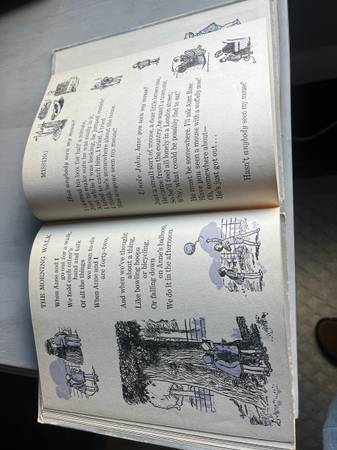 THE MORNING WALK
When Anne and I
go out for a walk,
We hold each other's
hand and talk
Of all the things
we mean to do
When Anne and I
are forty-two.
And when we've thought
about a thing,
Like bowling hoops
or bicycling,
Or falling down
on Anne's balloon,
We do it in the afternoon.
MISSING
Has anybody seen my mouse?
I opened his box for half a minute,
Just to make sure he was really in it,
And while I was looking, he jumped outside!
I tried to catch him, I tried, I tried. . . .
I think he's somewhere about the house.
Has anyone seen my mouse?
Uncle John, have you seen my mouse?
Just a small sort of mouse, a dear little brown one,
He came from the country, he wasn't a town one,
So he'll feel all lonely in a London street;
Why, what could he possibly find to eat?
He must be somewhere. I'll ask Aunt Rose:
Have you seen a mouse with a woffelly nose?
Oh, somewhere about—
He's just got out . . .
Hasn't anybody seen my mouse?